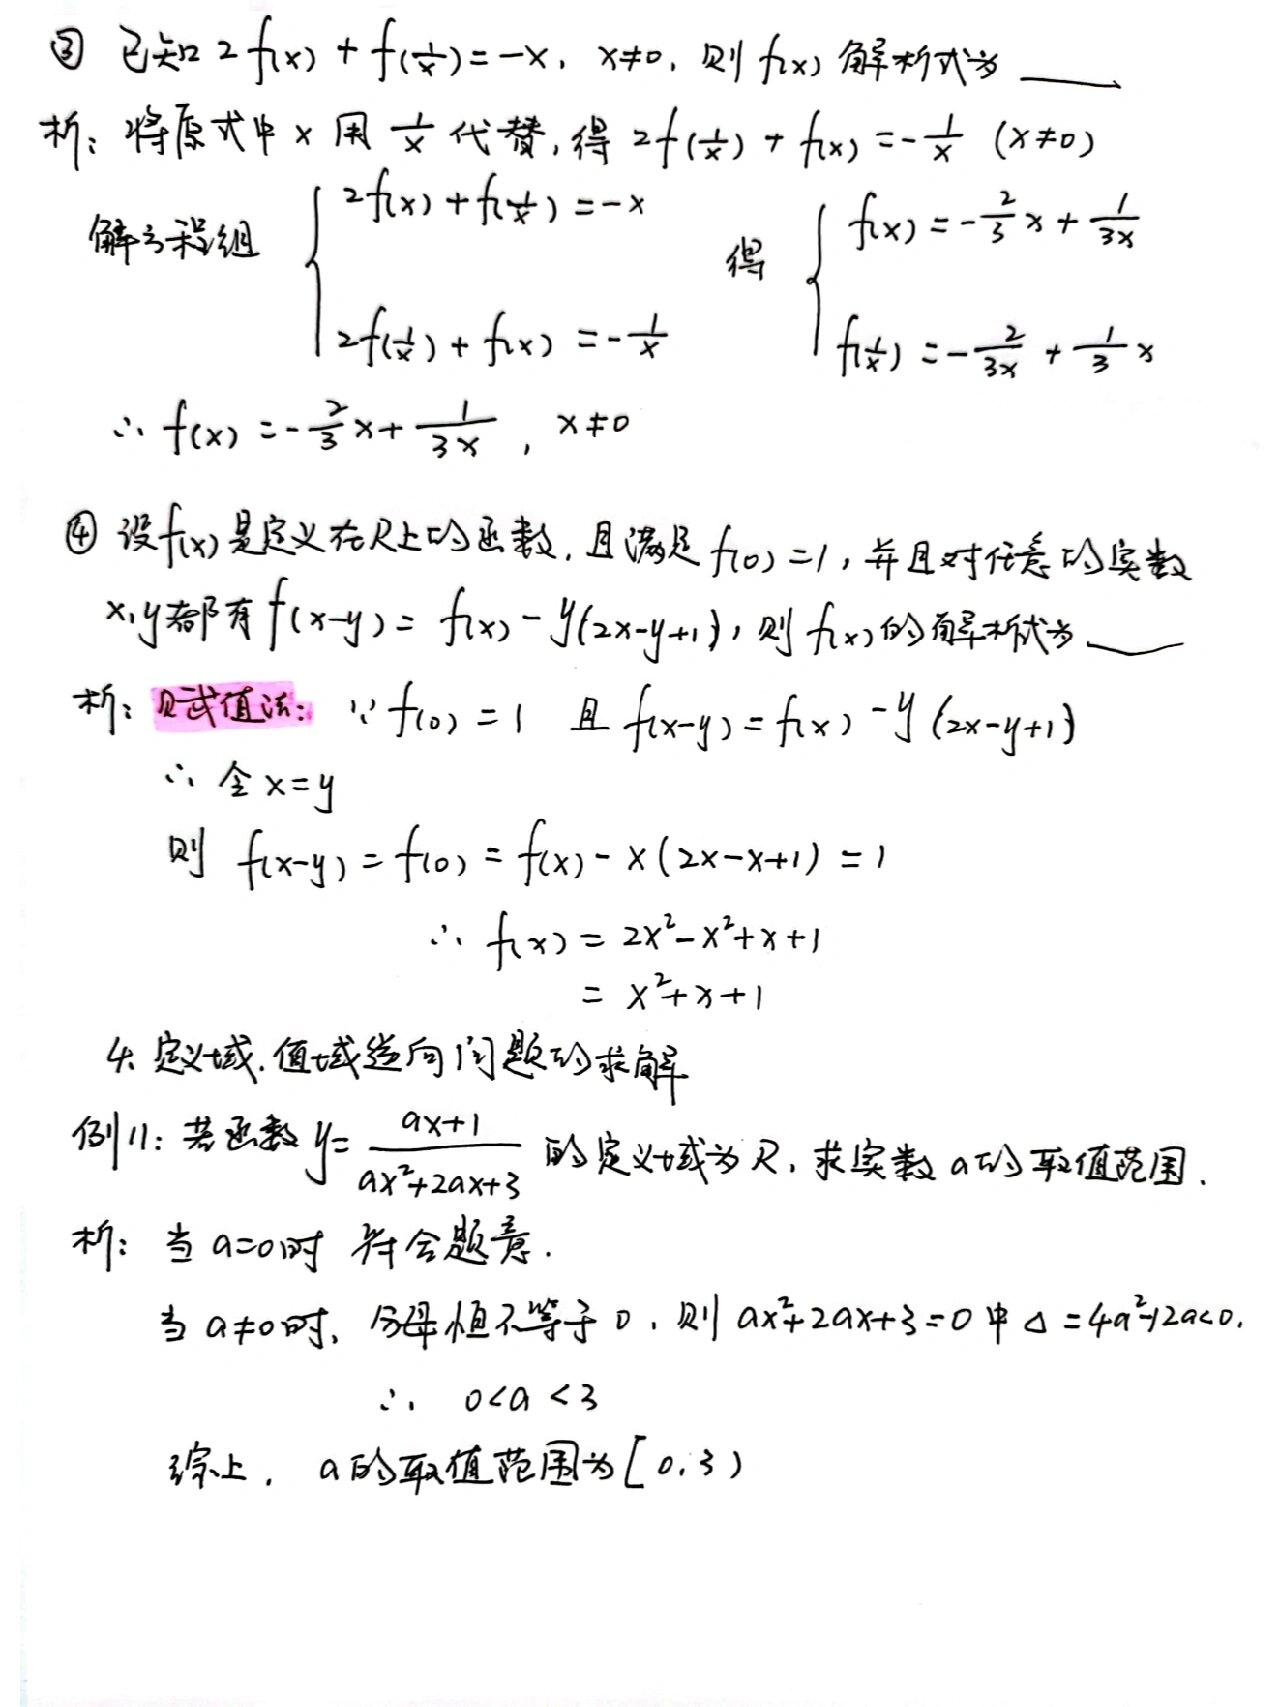 ③ 已知 2f(x) + f(1/x) = -x, x≠0, 则 f(x) 解析式为 ____
析: 将原式中 x 用 1/x 代替, 得 2f(1/x) + f(x) = -1/x (x≠0)
解方程组 { 2f(x) + f(1/x) = -x 得 { f(x) = -2/3 x + 1/3x
2f(1/x) + f(x) = -1/x f(1/x) = -2/3x + 1/3 x
∴ f(x) = -2/3 x + 1/3x , x≠0
④ 设f(x)是定义在R上的函数, 且满足 f(0) = 1, 并且对任意的实数
x,y都有 f(x-y) = f(x) - y(2x-y+1), 则 f(x)的解析式为 ____
析: 赋值法: ∵ f(0) = 1 且 f(x-y) = f(x) - y (2x-y+1)
∴ 令 x=y
则 f(x-y) = f(0) = f(x) - x(2x-x+1) = 1
∴ f(x) = 2x²-x²+x+1
= x²+x+1
4. 定义域.值域逆向问题的求解
例11: 若函数 y= ax+1/ax²+2ax+3 的定义域为 R, 求实数 a的取值范围.
析: 当 a=0时 符合题意.
当 a≠0时, 分母恒不等于 0, 则 ax²+2ax+3=0 中 Δ=4a²-12a<0.
∴ 0<a<3
综上, a的取值范围为[0.3)